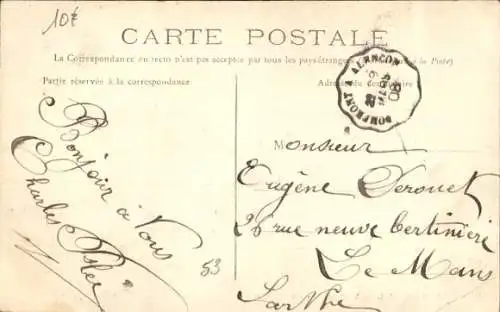 10€
CARTE POSTALE
La Correspondance au recto n'est pas acceptée par tous les pays étrangers la Poste)
Partie réservée à la correspondance
Adresse du destinataire
DOMFRONT A ALENÇON
08
Bonjour à Vous
Charles
53
Monsieur
Eugène Derouet
26 rue neuve Bertinière
Le Mans
Sarthe